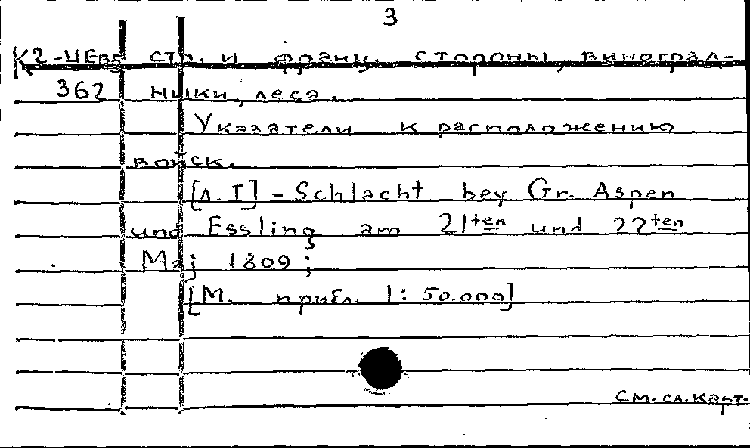 3
К2-ЦЕВ стр. и франц. стороны, виноград-
362 ники, леса.
Указатели к расположению
войск.
[Л. I] - Schlacht bey Gr. Aspen
und Essling am 21ten und 22ten
Maj 1809;
[М. прибл. 1:50.000]
См. сл. карт.